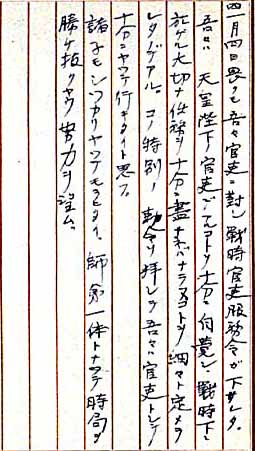 四月四日畏クモ吾々官吏ニ対シ戦時官吏服務令ガ下サレタ。
吾々ハ天皇陛下ノ官吏デアルコトヲ十分自覚シ戦時下ニ
於ケル大切ナ任務ヲ十分ニ尽サネバナラヌコトヲ細々ト定メラ
レタノデアル。コノ特別ノ勅令ヲ拝シテ吾々ハ官吏トシテ
十分ニヤッテ行キタイト思フ。
諸子モシッカリヤッテモラヒタイ。師弟一体トナッテ時局ヲ
勝ケ抜クヤウ努力ヲ望ム。